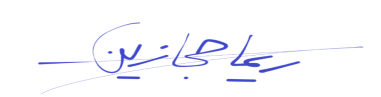 ريما حجازين